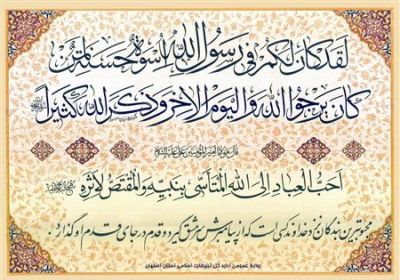 لقد كان لكم فى رسول الله اسوة حسنة لمن
كان يرجوا الله واليوم الاخر وذكر الله كثيرا
قال مولانا اميرالمؤمنين على عليه السلام
احب العباد الى الله المتأسى بنبيه والمقتص لاثره
محبوبترین بندگان نزد خداوند کسی است که از پیامبرش سرمشق گیرد و قدم در جای قدم او گذارد.
روابط عمومی اداره کل تبلیغات اسلامی استان اصفهان